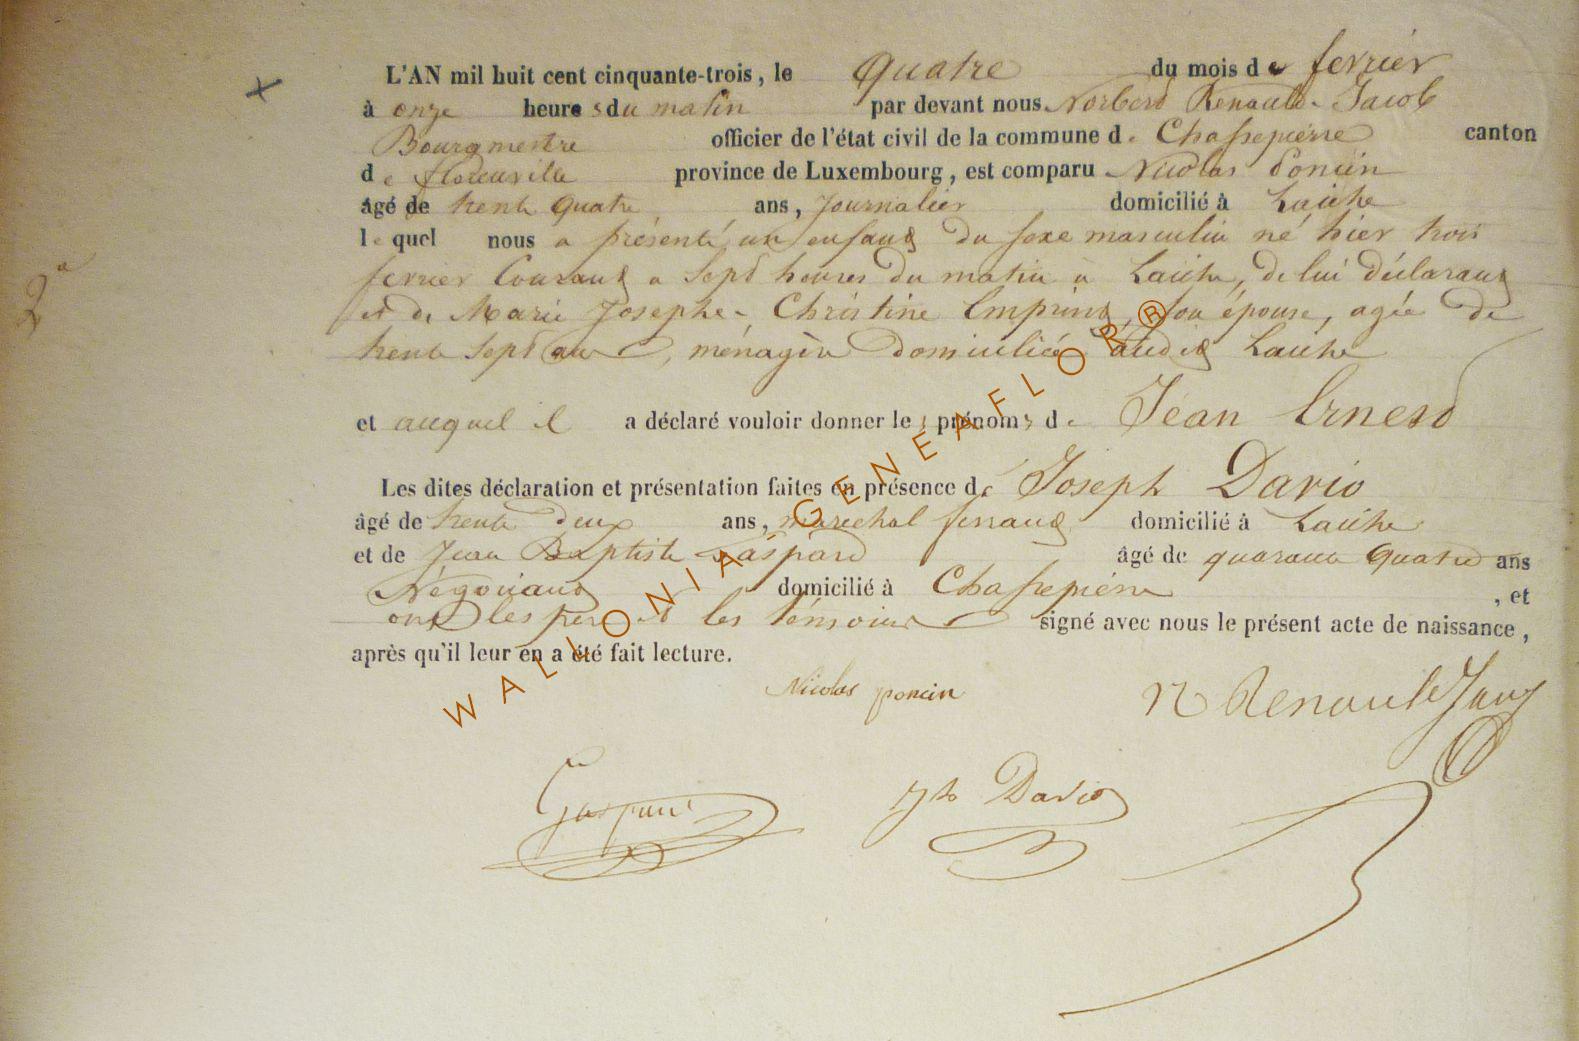 L'AN mil huit cent cinquante-trois, le quatre du mois de fevrier
à onze heures du matin par devant nous Norbert Renauld-Jacob
Bourgmestre officier de l'état civil de la commune de Chassepierre canton
de florenville province de Luxembourg, est comparu Nicolas Poncin
âgé de trente quatre ans, Journalier domicilié à Laiche
le quel nous a présenté un enfant du sexe masculin né hier trois
fevrier Courant a Sept heures du matin à Laiche, de lui déclarant
et de Marie Josephe-Christine Emprint, son épouse, agée de
trente Sept ans, ménagère domiciliée audit Laiche
et auquel il a déclaré vouloir donner les prénoms de Jean Ernest
Les dites déclaration et présentation faites en présence de Joseph Dario
âgé de trente deux ans, marechal ferrant domicilié à Laiche
et de Jean Baptiste Gaspard âgé de quarante quatre ans
Négociant domicilié à Chassepierre, et
ont les père et les témoins signé avec nous le présent acte de naissance,
après qu'il leur en a été fait lecture.
Nicolas poncin N Renauld Jacob
Gaspard Jph Dario
WALLONIA - GENEAFLOR ®